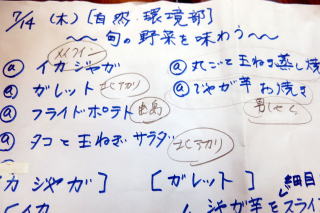 7/14 (木) [自然・環境部]
〜旬の野菜を味わう〜
メイクイン
ⓐ イカジャガ
ⓐ 丸ごと玉ねぎ蒸し焼
ⓐ ガレット キタアカリ
ⓐ ジャガ芋お焼き
男しゃく
ⓐ フライドポテト 出島
ⓐ タコと玉ねぎサラダ
キタアカリ
イカジャガ] [ガレット] 細目
[イカ
ジャガ芋をスライ